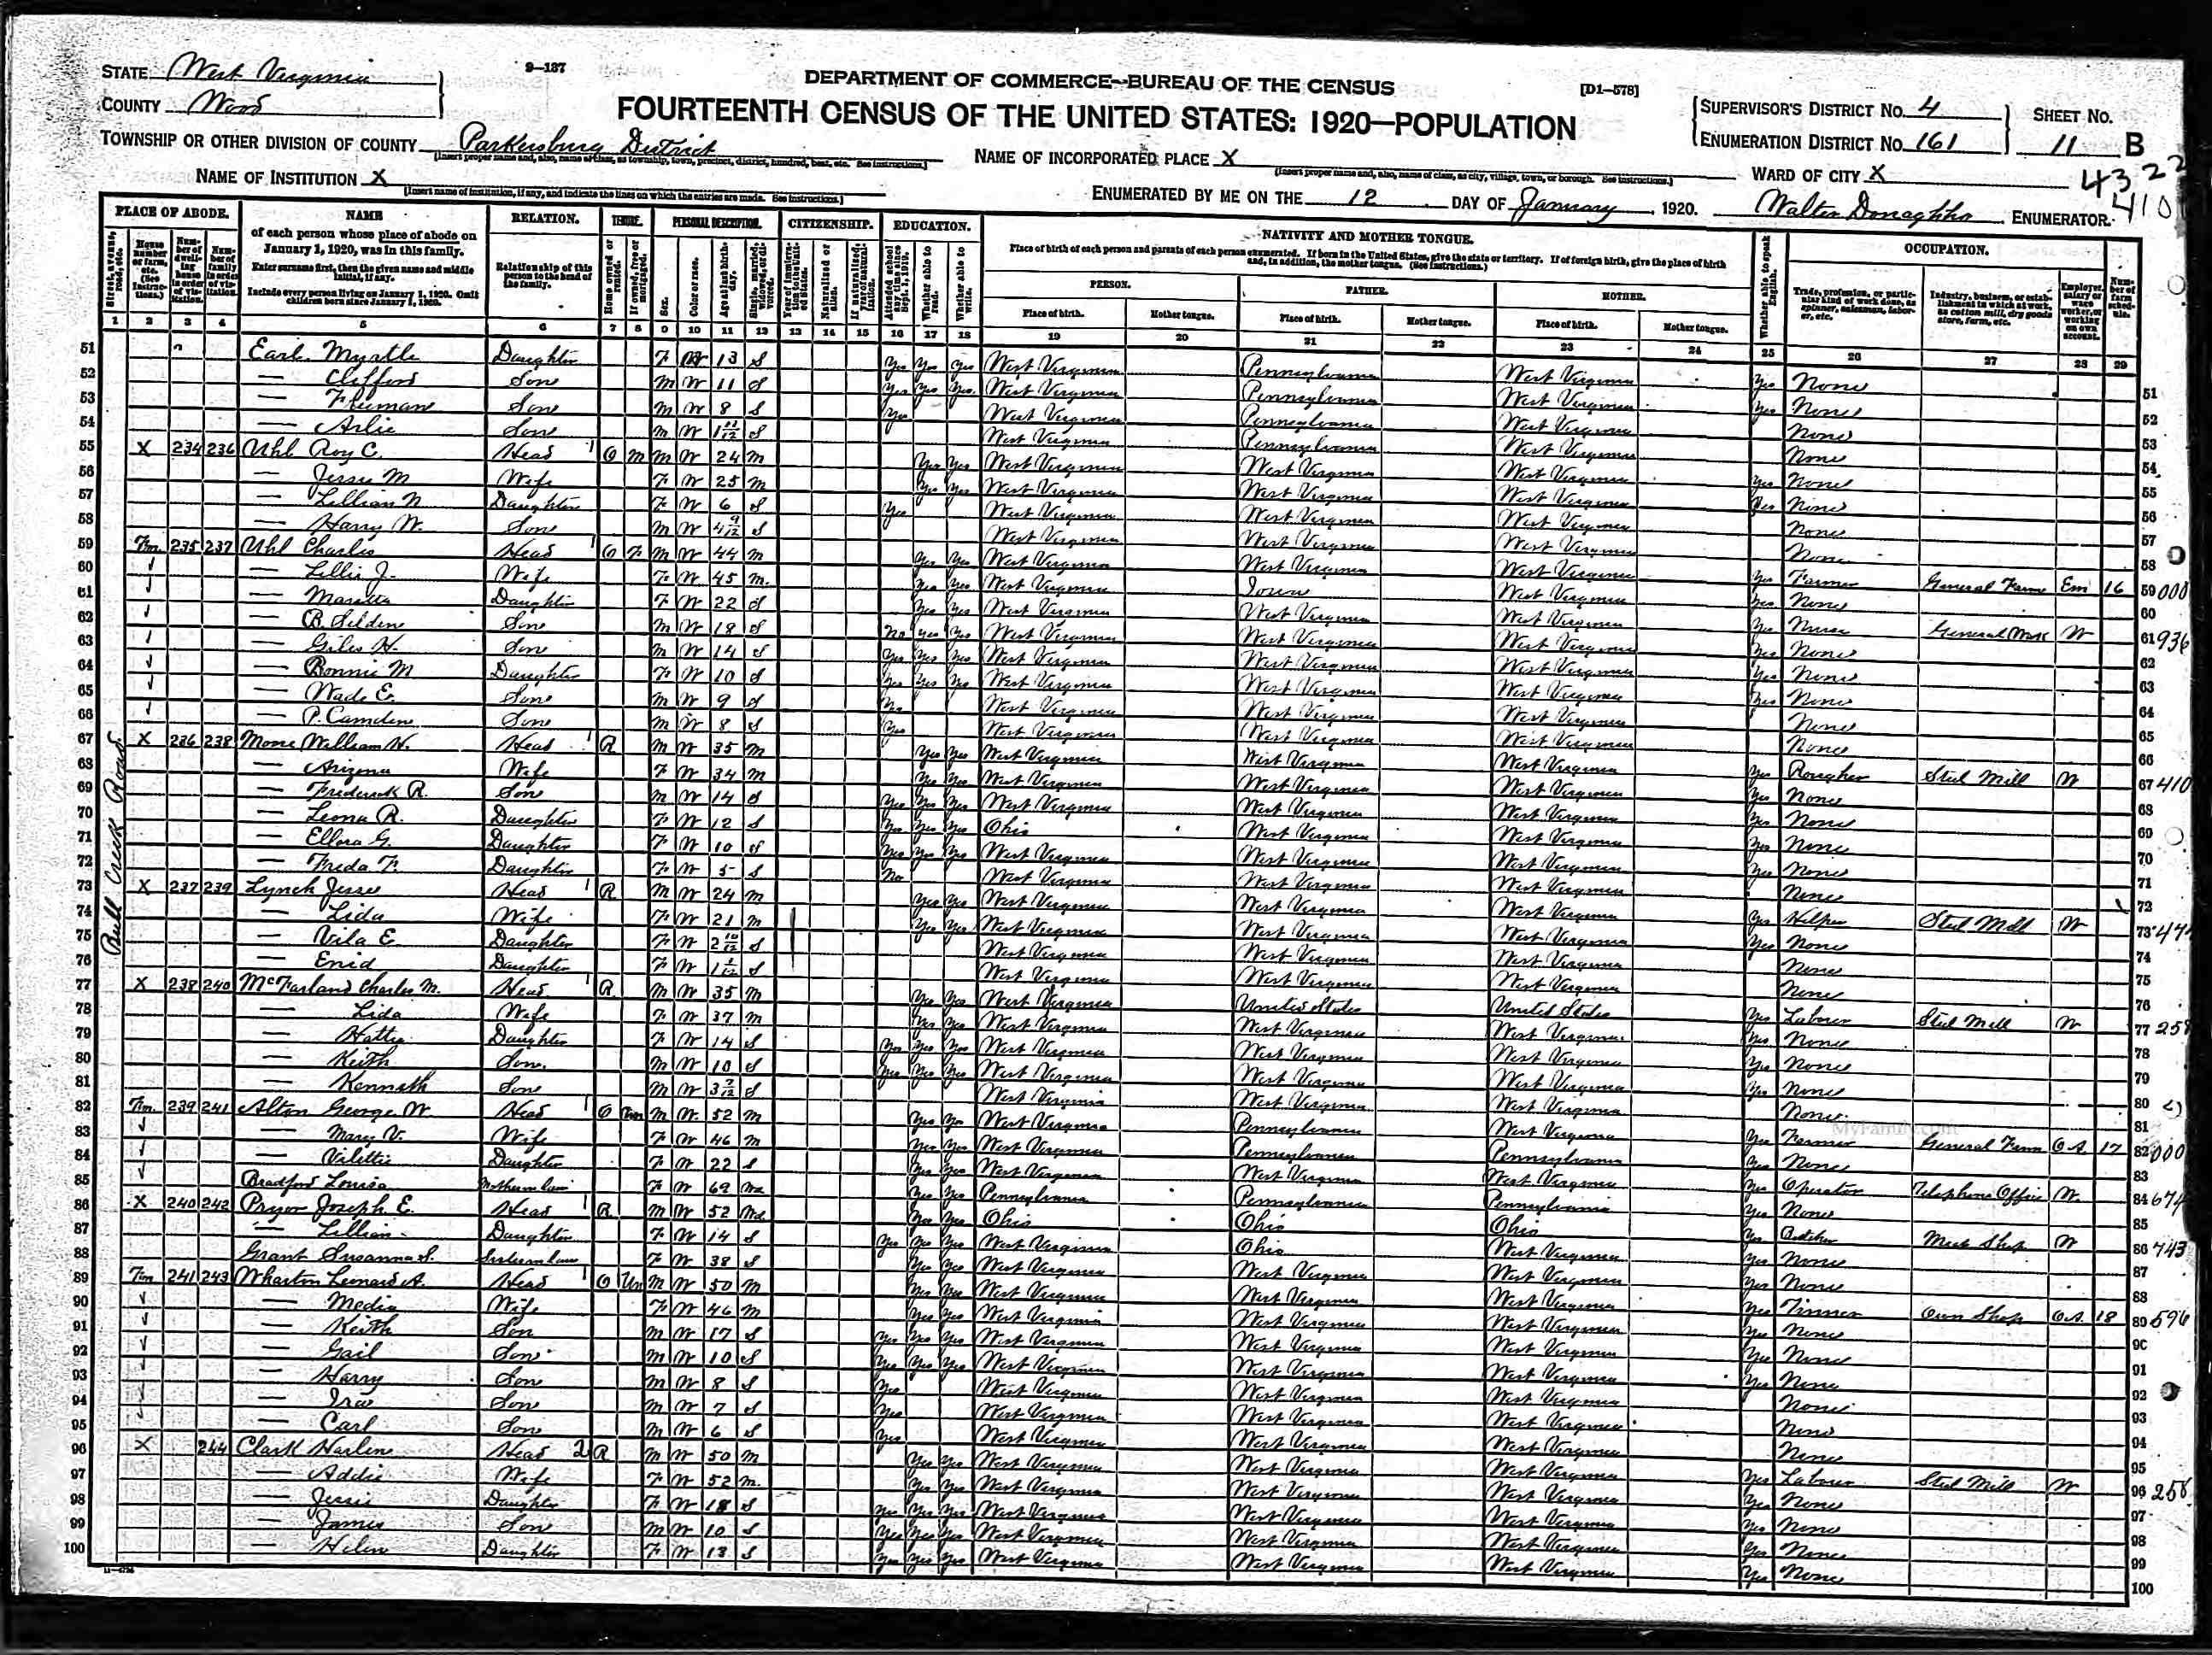 STATE West Virginia
9-137
DEPARTMENT OF COMMERCE-BUREAU OF THE CENSUS
[D1-578]
COUNTY Wood
FOURTEENTH CENSUS OF THE UNITED STATES: 1920-POPULATION
SUPERVISOR'S DISTRICT No. 4
SHEET No.
ENUMERATION DISTRICT No. 161
11 B
TOWNSHIP OR OTHER DIVISION OF COUNTY Parkersburg District
NAME OF INCORPORATED PLACE X
WARD OF CITY X
4322
410
NAME OF INSTITUTION X
ENUMERATED BY ME ON THE 12 DAY OF January, 1920. Walter Donaghho ENUMERATOR.
PLACE OF ABODE. NAME RELATION. TENURE. PERSONAL DESCRIPTION. CITIZENSHIP. EDUCATION. NATIVITY AND MOTHER TONGUE. OCCUPATION.
of each person whose place of abode on January 1, 1920, was in this family.
PERSON. FATHER. MOTHER.
Place of birth. Mother tongue. Place of birth. Mother tongue. Place of birth. Mother tongue.
1 2 3 4 5 6 7 8 9 10 11 12 13 14 15 16 17 18 19 20 21 22 23 24 25 26 27 28 29
Bull Creek Road
51 Earl Myrtle Daughter F W 13 S Yes Yes Yes West Virginia Pennsylvania West Virginia Yes None
52 — Clifford Son M W 11 S Yes Yes Yes West Virginia Pennsylvania West Virginia Yes None
53 — Son M W 8 S Yes West Virginia Pennsylvania West Virginia None
54 — Arlie Son M W 1 11/12 S West Virginia Pennsylvania West Virginia None
55 X 234 236 Uhl Roy C. Head 1 O M M W 24 M Yes Yes West Virginia West Virginia West Virginia Yes None
56 — Jessie M Wife F W 25 M Yes Yes West Virginia West Virginia West Virginia Yes None
57 — Lillian N Daughter F W 6 S Yes West Virginia West Virginia West Virginia None
58 — Harry W. Son M W 4 9/12 S West Virginia West Virginia West Virginia None
59 Fm. 235 237 Uhl Charles Head 1 O F M W 44 M Yes Yes West Virginia West Virginia West Virginia Yes Farmer General Farm Em 16 000
60 — Lillie J. Wife F W 45 M. Yes Yes West Virginia Iowa West Virginia Yes None
61 — Daughter F W 22 S Yes Yes West Virginia West Virginia West Virginia Yes Nurse General Work W 936
62 — B. Selden Son M W 18 S No Yes Yes West Virginia West Virginia West Virginia Yes None
63 — Giles H. Son M W 14 S Yes Yes Yes West Virginia West Virginia West Virginia Yes None
64 — Bonnie M Daughter F W 10 S Yes Yes Yes West Virginia West Virginia West Virginia Yes None
65 — Wade E. Son M W 9 S West Virginia West Virginia West Virginia None
66 — P. Camden Son M W 8 S Yes West Virginia West Virginia West Virginia None
67 X 236 238 William H. Head 1 R M W 35 M Yes Yes West Virginia West Virginia West Virginia Yes Rougher Steel Mill W 410
68 — Arizona Wife F W 34 M Yes Yes West Virginia West Virginia West Virginia Yes None
69 — Frederick R. Son M W 14 S Yes Yes Yes West Virginia West Virginia West Virginia Yes None
70 — Leona R. Daughter F W 12 S Yes Yes Yes Ohio West Virginia West Virginia Yes None
71 — Ellora G. Daughter F W 10 S Yes Yes Yes West Virginia West Virginia West Virginia Yes None
72 — Freda F. Daughter F W 5 S No West Virginia West Virginia West Virginia None
73 X 237 239 Lynch Jesse Head 1 R M W 24 M Yes Yes West Virginia West Virginia West Virginia Yes Helper Steel Mill W
74 — Lida Wife F W 21 M Yes Yes West Virginia West Virginia West Virginia Yes None
75 — Vila E Daughter F W 2 10/12 S West Virginia West Virginia West Virginia None
76 — Enid Daughter F W S West Virginia West Virginia West Virginia None
77 X 238 240 McFarland Charles M. Head 1 R M W 35 M Yes Yes West Virginia United States United States Yes Laborer Steel Mill W 258
78 — Lida Wife F W 37 M Yes Yes West Virginia West Virginia West Virginia Yes None
79 — Daughter F W 14 S Yes Yes Yes West Virginia West Virginia West Virginia Yes None
80 — Keith Son M W 10 S Yes Yes Yes West Virginia West Virginia West Virginia Yes None
81 — Kenneth Son M W S West Virginia West Virginia West Virginia None
82 Fm. 239 241 Alton George W. Head 1 O M W 52 M Yes Yes West Virginia Pennsylvania West Virginia Yes Farmer General Farm O.A. 17 000
83 — Mary V. Wife F W 46 M Yes Yes West Virginia Pennsylvania Pennsylvania Yes None
84 — Daughter F W 22 S Yes Yes West Virginia West Virginia West Virginia Yes Operator Telephone Office W. 674
85 Bradford Louisa Mother in law F W 69 Wd Yes Yes Pennsylvania Pennsylvania Pennsylvania Yes None
86 X 240 242 Pryor Joseph E. Head 1 R M W 52 Wd. Yes Yes Ohio Ohio Ohio Yes Butcher Meat Shop W 743
87 — Lillian Daughter F W 14 S Yes Yes Yes West Virginia Ohio West Virginia Yes None
88 Grant Susanna S. Sister in law F W 38 S Yes Yes West Virginia West Virginia West Virginia Yes None
89 Fm 241 243 Wharton Leonard A. Head 1 O Un M W 50 M Yes Yes West Virginia West Virginia West Virginia Yes Tinner Own Shop O.A. 18 596
90 — Media Wife F W 46 M Yes Yes West Virginia West Virginia West Virginia Yes None
91 — Keith Son M W 17 S Yes Yes Yes West Virginia West Virginia West Virginia Yes None
92 — Gail Son M W 10 S Yes Yes Yes West Virginia West Virginia West Virginia Yes None
93 — Harry Son M W 8 S Yes West Virginia West Virginia West Virginia None
94 — Ira Son M W 7 S Yes West Virginia West Virginia West Virginia None
95 — Carl Son M W 6 S Yes West Virginia West Virginia West Virginia None
96 X 244 Clark Head 2 R M W 50 M Yes Yes West Virginia West Virginia West Virginia Yes Laborer Steel Mill W 258
97 — Addie Wife F W 52 M. Yes Yes West Virginia West Virginia West Virginia Yes None
98 — Jessie Daughter F W 18 S Yes Yes West Virginia West Virginia West Virginia Yes None
99 — James Son M W 10 S Yes Yes Yes West Virginia West Virginia West Virginia Yes None
100 — Helen Daughter F W 13 S Yes Yes Yes West Virginia West Virginia West Virginia Yes None
MyFamily.com